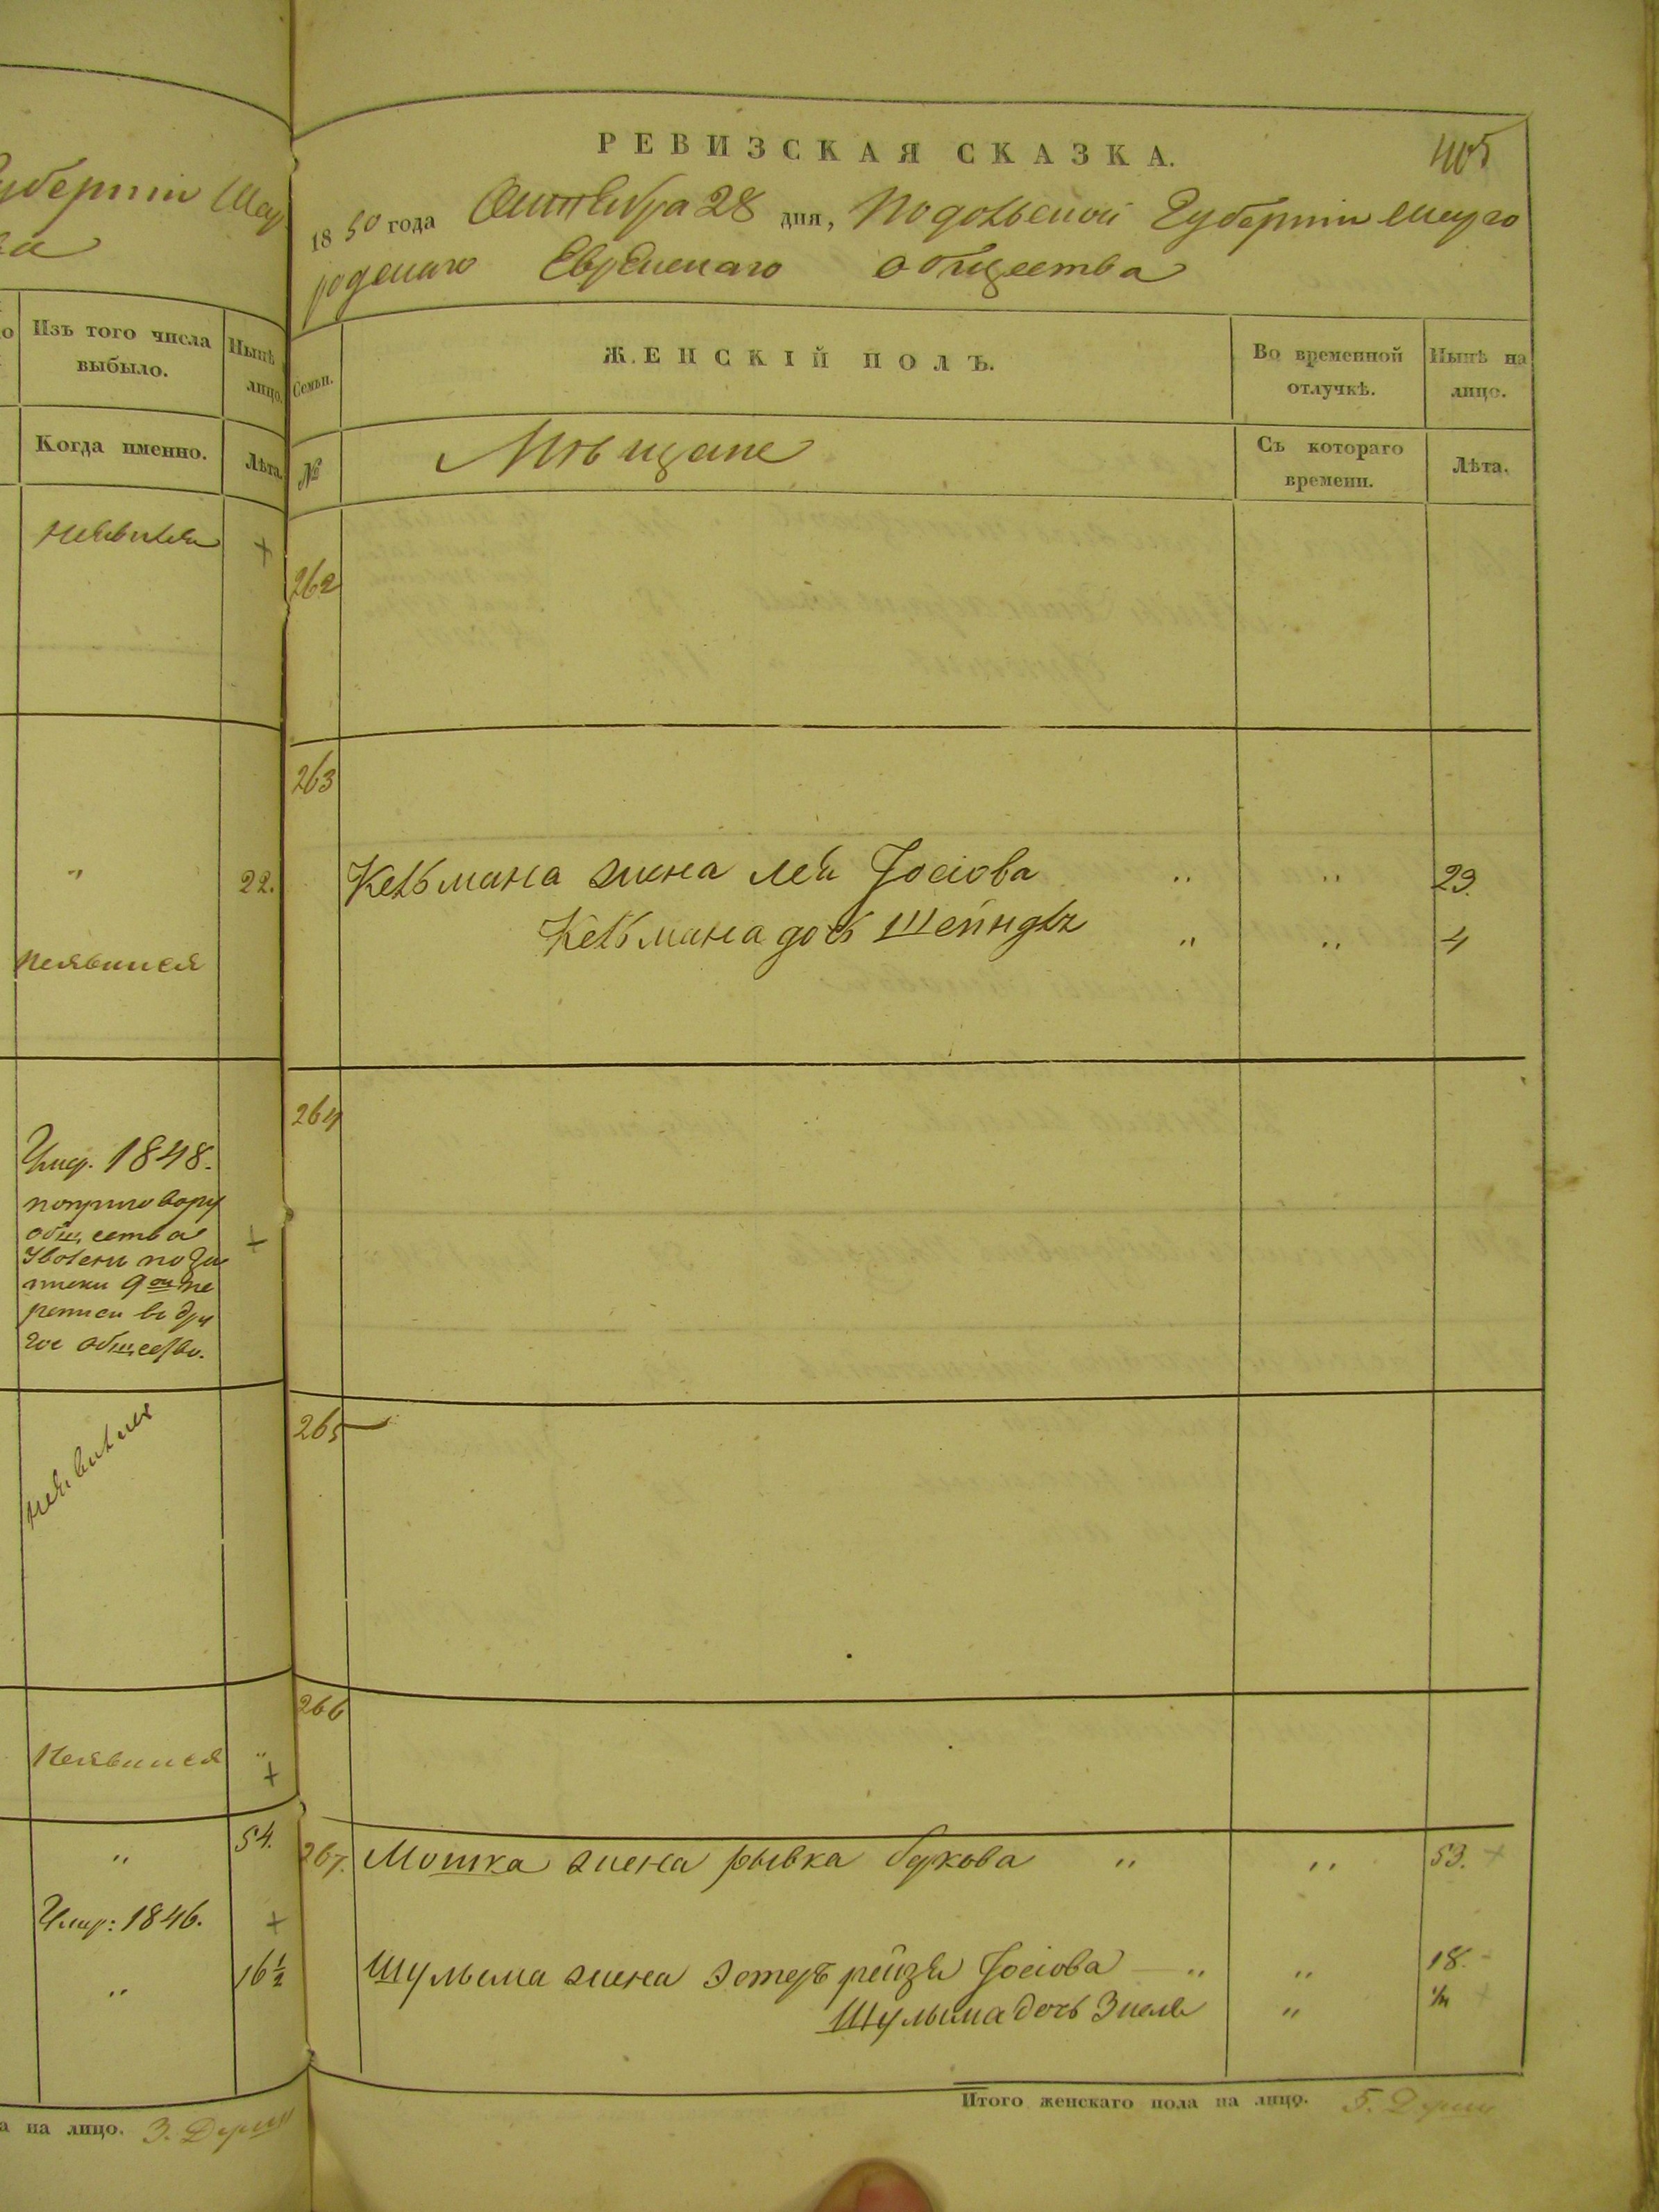 губерніи Шар
ва
Изъ того числа
выбыло.
Нынѣ
лицо.
Когда именно.
Лѣта.
неявился
+
"
22.
неявился
1848.
по приговору
общества
уволенъ
9ой пе
реписи въ дру
гое общество.
+
неявился
неявился
"
+
"
54.
Умер: 1846.
+
"
16 ½
на лицо. 3. Души
РЕВИЗСКАЯ СКАЗКА.
405
1850 года Октября 28 дня, Подольской Губерніи Шарго
родскаго Еврейскаго общества
Семьи.
ЖЕНСКІЙ ПОЛЪ.
Во временной
отлучкѣ.
Нынѣ на
лицо.
№
Мѣщане
Съ котораго
времени.
Лѣта.
262
263
Кельмана жена Лея Іосіова " " 23.
Кельмана дочь Шейндля " " 4
264
265
266
267. Мошка жена рывка букова " " 53. +
Шульма жена Эстеръ рейзя Іосіова " " 18.
Шульма дочь "
Итого женскаго пола на лицо. 5. Души